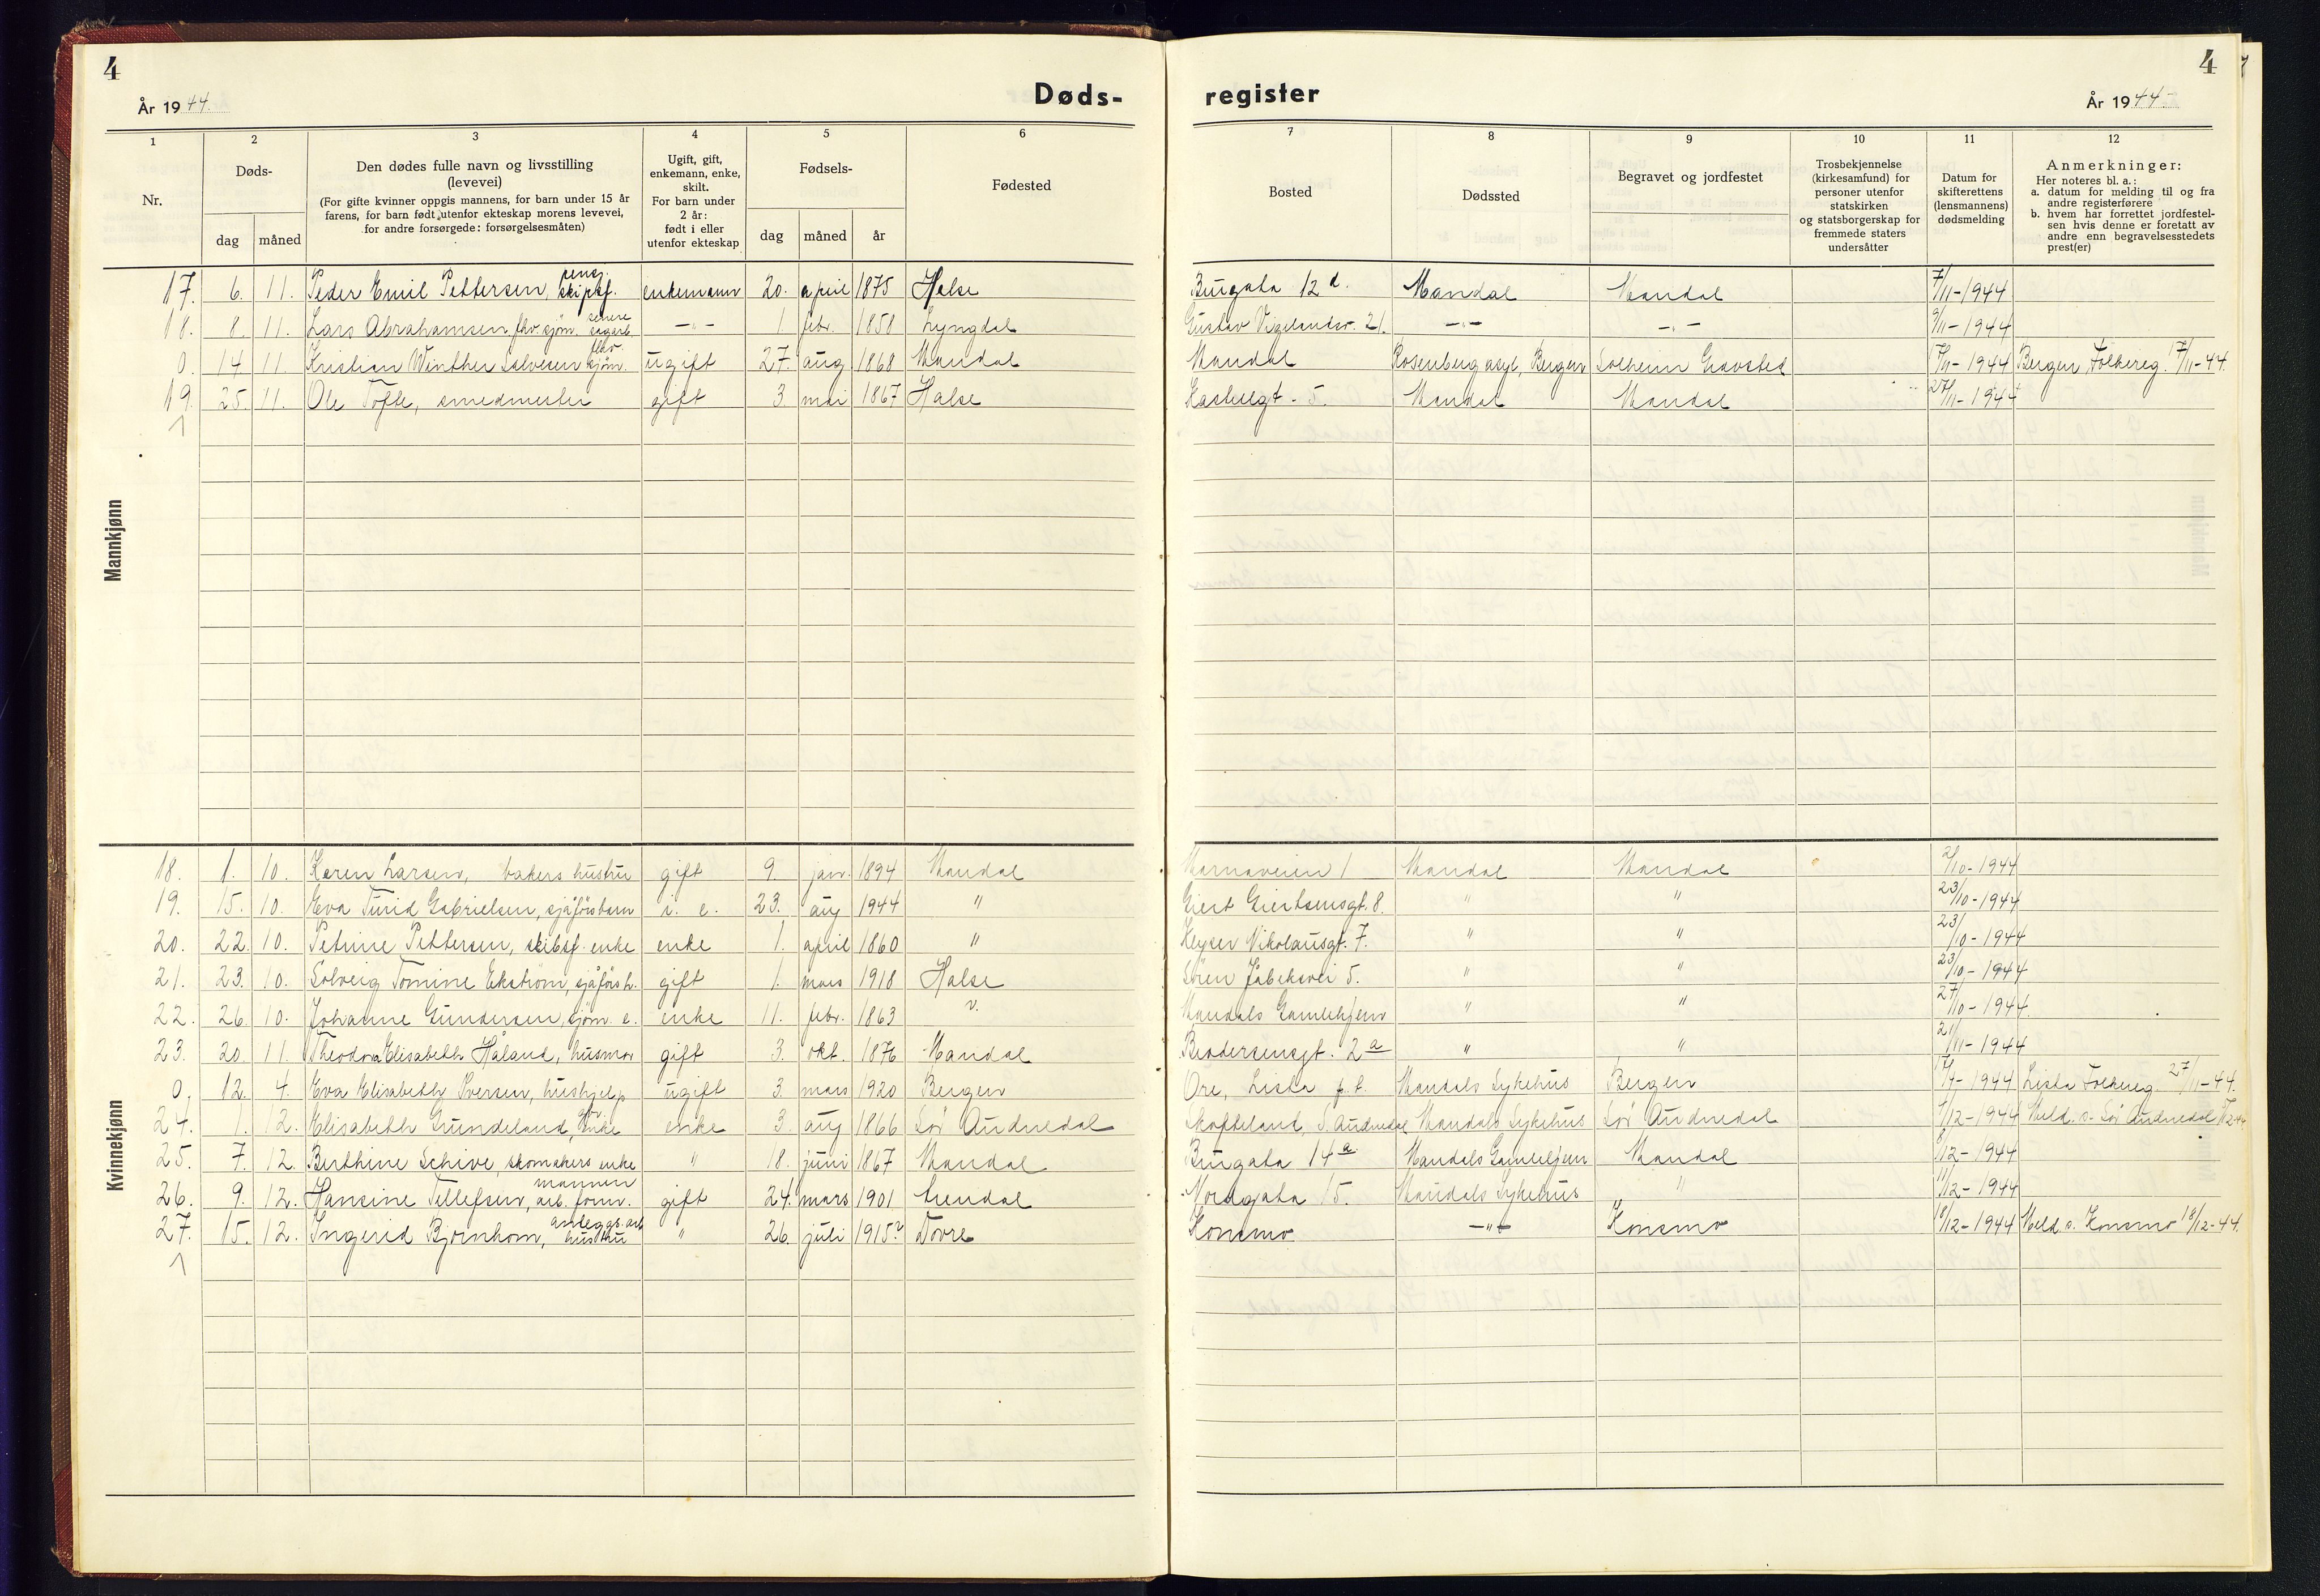 4
År 1944.
Døds-
register
4
År 1944
1 2 3 4 5 6 7 8 9 10 11 12
Nr.
Døds-
dag måned
Den dødes fulle navn og livsstilling
(levevei)
(For gifte kvinner oppgis mannens, for barn under 15 år
farens, for barn født utenfor ekteskap morens levevei,
for andre forsørgede: forsørgelsesmåten)
Ugift, gift,
enkemann, enke,
skilt.
For barn under
2 år:
født i eller
utenfor ekteskap
Fødsels-
dag måned år
Fødested
Bosted
Dødssted
Begravet og jordfestet
Trosbekjennelse
(kirkesamfund) for
personer utenfor
statskirken
og statsborgerskap for
fremmede staters
undersåtter
Datum for
skifterettens
(lensmannens)
dødsmelding
Anmerkninger:
Her noteres bl. a.:
a. datum for melding til og fra
andre registerførere
b. hvem har forrettet jordfestel-
sen hvis denne er foretatt av
andre enn begravelsesstedets
prest(er)
Mannkjønn
17. 6. 11. Peder Emil Pettersen, pensj. skipsf. enkemann 20. april 1875 Halse Bugata 12 d. Mandal Mandal 7/11-1944
18. 8. 11. Lars Abrahamsen, fhv. sjøm. senere sagarb. -"- 1. febr. 1858 Lyngdal Gustav Vigelandsv. 21. -"- -"- 9/11-1944
0. 14 11. Kristian Winther Salvesen fhv. sjøm. ugift 27. aug 1868 Mandal Mandal Rosenberg asyl, Bergen Solheim Gravsted 17/11-1944 Bergen Folkereg. 17/11-44.
19. 25. 11. Ole Tofte, smedmester gift 3. mai 1867 Halse 5. Mandal Mandal 27/11-1944
Kvinnekjønn
18. 1. 10. Karen Larsen, bakers hustru gift 9. jan. 1894 Mandal Marnaveien 1 Mandal Mandal /10-1944
19. 15. 10. Eva Turid Gabrielsen, sjåførsbarn i. e. 23. aug 1944 " Giert Giertsensgt. 8. " " 23/10-1944
20. 22. 10. Petrine Pettersen, skibsf. enke enke 1. april 1860 " Keyser Nikolausgt. 7. " " 23/10-1944
21. 23. 10. Solveig Tomine Ekström, sjåførs h. gift 1. mars 1918 Halse Sören Jåbeksvei 5. " " 23/10-1944
22. 26. 10. Johanne Gundersen, sjøm. e. enke 11. febr. 1863 Mandals Gamlehjem " " 27/10-1944
23. 20. 11. Theodora Elisabeth Håland, husmor gift 3. okt. 1876 Mandal Brodersensgt. 2 a " " 21/11-1944
0. 12. 4. Eva Elisabeth Iversen, hushjelp ugift 3. mars 1920 Bergen Ore, Lista p.t. Mandals Sykehus Bergen 17/4-1944 Lista Folkereg. 27/11-44.
24. 1. 12. Elisabeth Gundeland, enke enke 3. aug 1866 Sør Audnedal S. Audnedal Mandals Sykehus Sør Audnedal /12-1944 Meld. s. Sør Audnedal
25. 7. 12. Berthine Schive, skomakers enke " 18. juni 1867 Mandal Bugata 14 a Mandals Gamlehjem Mandal 8/12-1944
26. 9. 12. Hansine Tellefsen, mannen arb. form. gift 24. mars 1901 Nordgata 15. Mandals Sykehus " 11/12-1944
27. 15. 12. Ingerid Bjørnhom, anleggs.arb hustru " 26. juli 1915? Dovre Konsmo -"- Konsmo 18/12-1944 Meld. s. Konsmo 18/12-44.